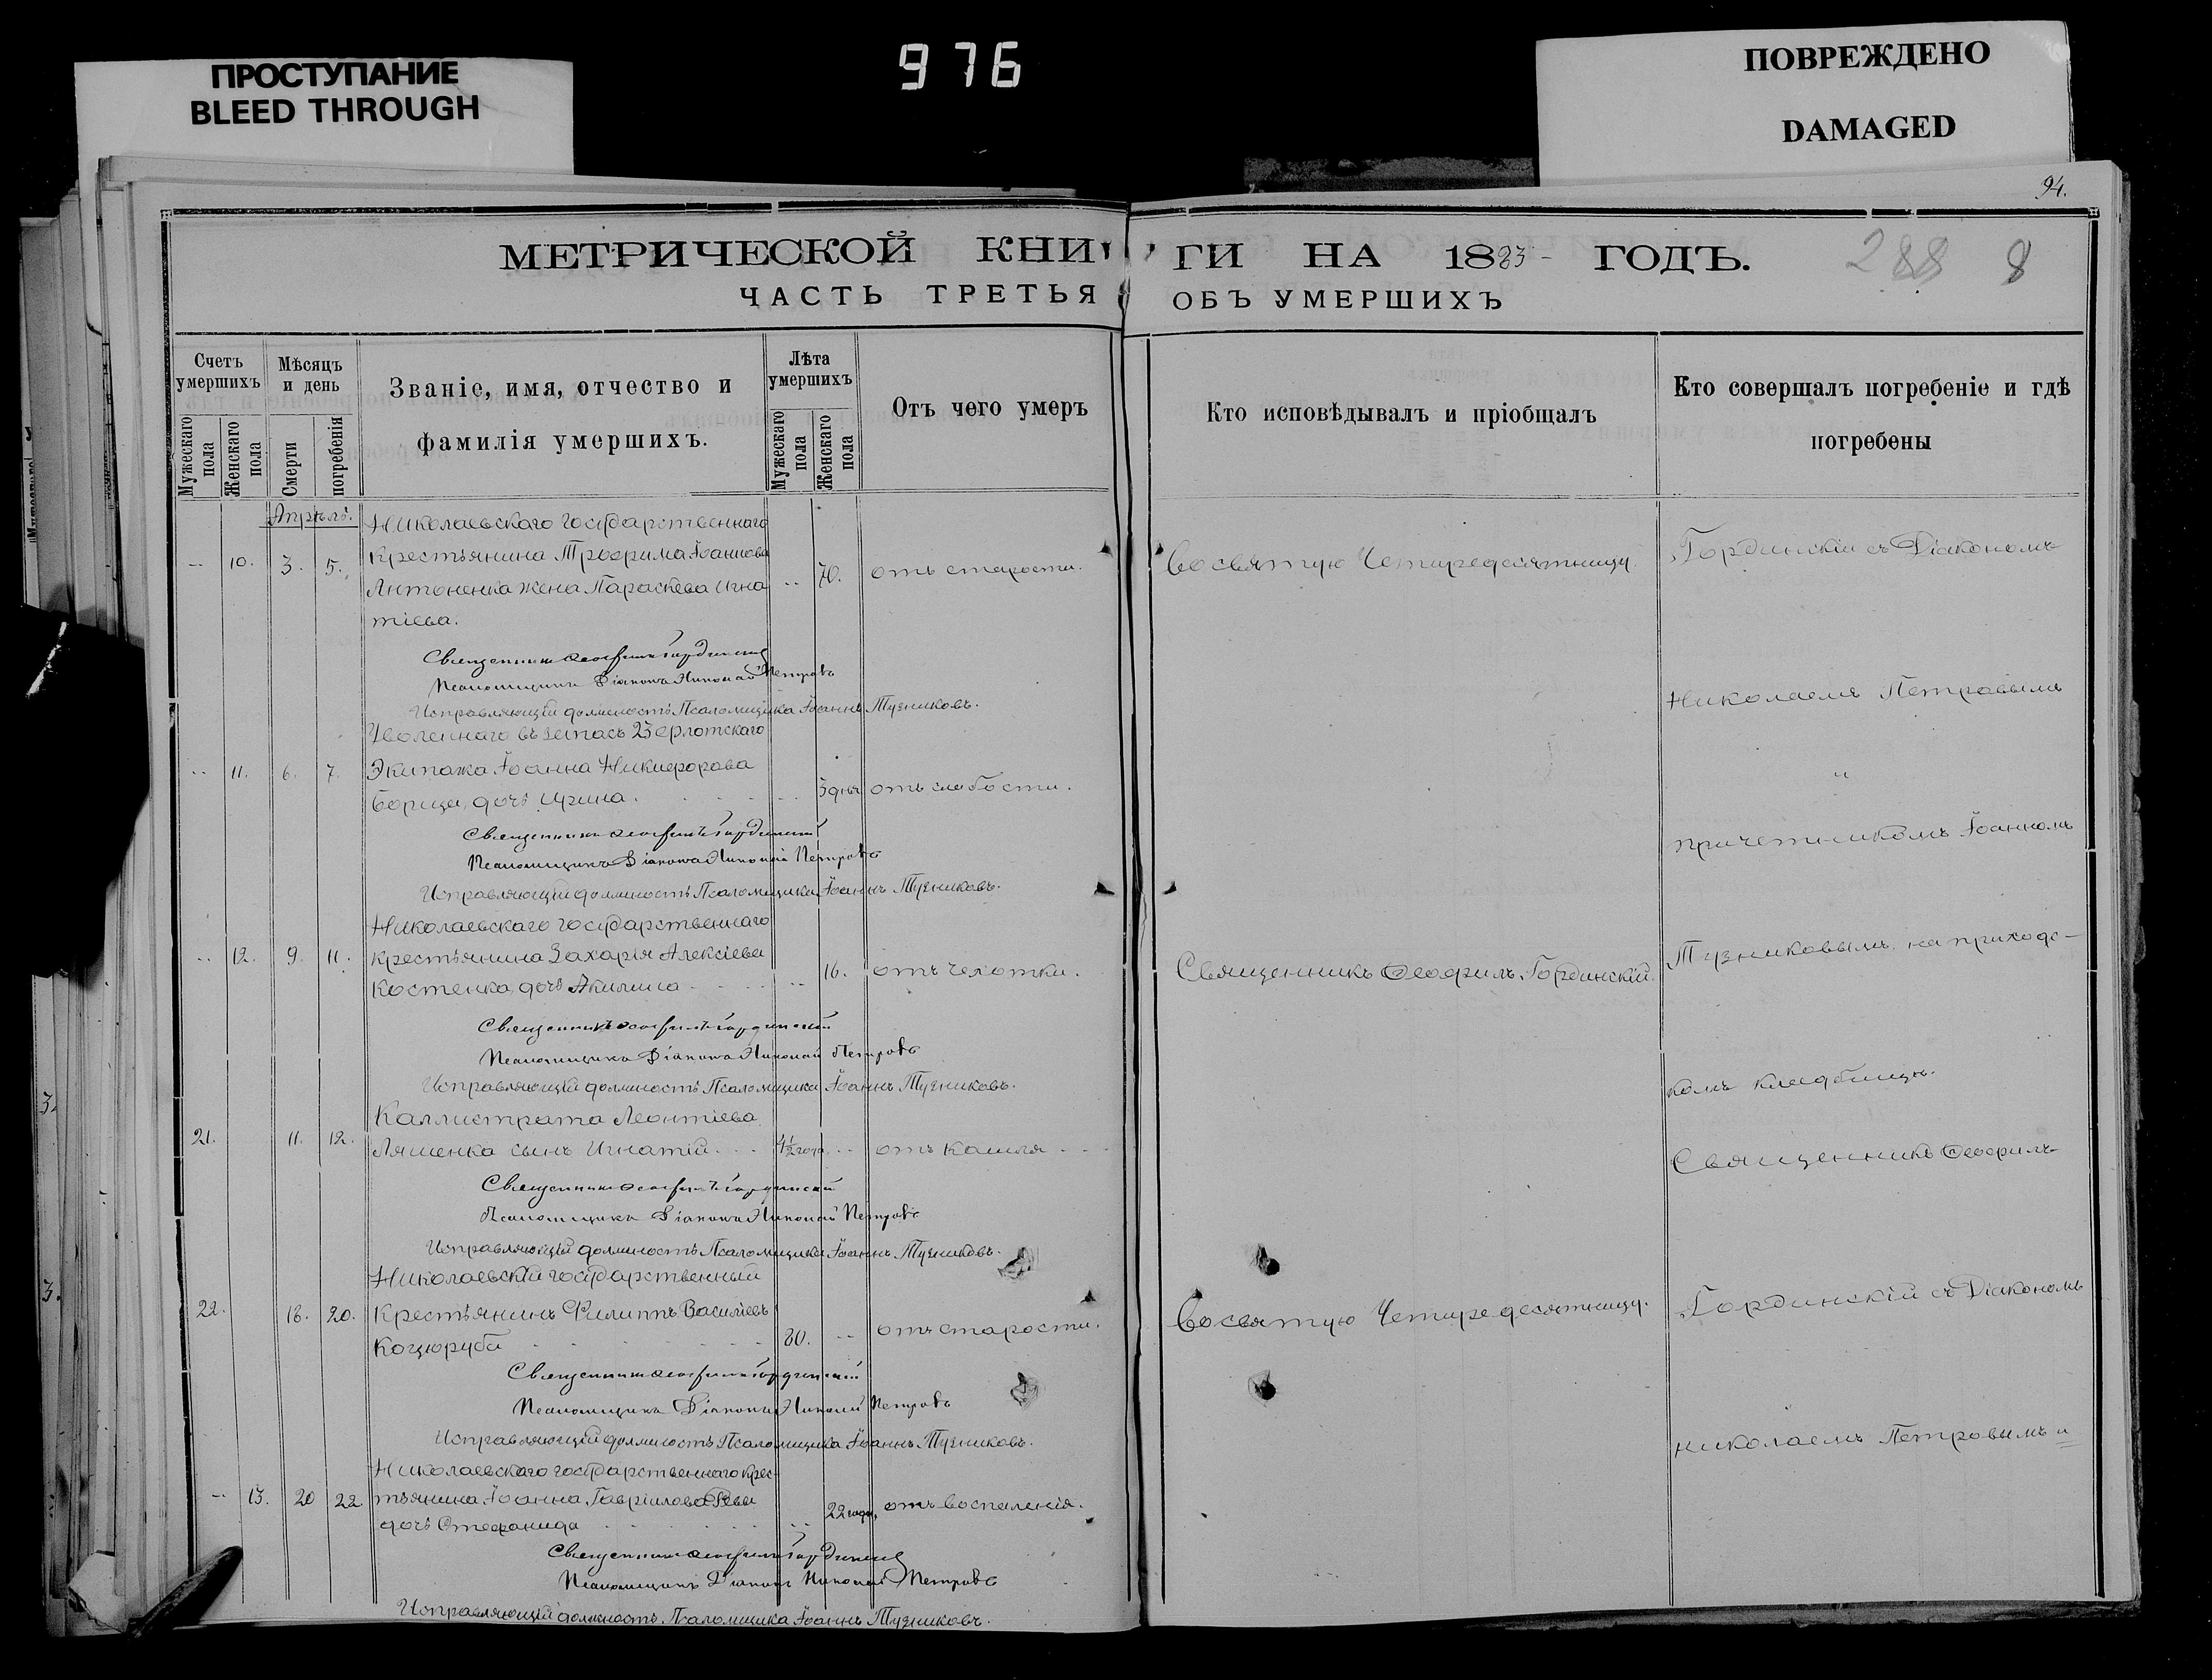 ПРОСТУПАНИЕ
BLEED THROUGH
976
ПОВРЕЖДЕНО
DAMAGED
94.
МЕТРИЧЕСКОЙ КНИ
ГИ НА 1883 ГОДЪ.
288 8
ЧАСТЬ ТРЕТЬЯ
ОБЪ УМЕРШИХЪ
Счетъ умершихъ
Мужескаго пола
Женскаго пола
Мѣсяцъ и день
Смерти
погребенія
Званіе, имя, отчество и
фамилія умершихъ.
Лѣта умершихъ
Мужескаго пола
Женскаго пола
Отъ чего умеръ
Кто исповѣдывалъ и пріобщалъ
Кто совершалъ погребеніе и гдѣ
погребены
Апрѣль.
Николаевскаго государственнаго
10. 3. 5. крестьянина Трофима Іоаннова
Антоненка жена Параскева Игна 70. отъ старости. Во святую Четыредесятницу.
тіева.
Гординскій съ Діакономъ
Священникъ Ѳеофилъ Гординскій
Псаломщикъ Діаконъ Николай Петровъ
Исправляющій должность Псаломщика Іоаннъ Тузниковъ.
Николаемъ Петровымъ
Уволеннаго въ запасъ 23 Флотскаго
11. 6. 7. Экипажа Іоанна Никифорова
Борща, дочь Ирина. дней отъ слабости.
Священникъ Ѳеофилъ Гординскій
Псаломщикъ Діаконъ Николай Петровъ
Исправляющій должность Псаломщика Іоаннъ Тузниковъ.
причетникомъ Іоанномъ
Николаевскаго государственнаго
12. 9. 11. крестьянина Захарія Алексіева
Костенка, дочь Акилина 16. отъ чехотки. Священникъ Ѳеофилъ Гординскій.
Тузниковымъ на приходс-
Священникъ Ѳеофилъ Гординскій
Псаломщикъ Діаконъ Николай Петровъ
Исправляющій должность Псаломщика Іоаннъ Тузниковъ.
комъ кладбищѣ.
Каллистрата Леонтіева
21. 11. 12. Ляшенка сынъ Игнатій 1/2 года отъ кашля
Священникъ Ѳеофилъ
Священникъ Ѳеофилъ Гординскій
Псаломщикъ Діаконъ Николай Петровъ
Исправляющій должность Псаломщика Іоаннъ Тузниковъ.
Николаевскій государственный
22. 18. 20. Крестьянинъ Филиппъ Василіевъ
Коцюруба 80. отъ старости. Во святую Четыредесятницу.
Гординскій съ Діакономъ
Священникъ Ѳеофилъ Гординскій
Псаломщикъ Діаконъ Николай Петровъ
Исправляющій должность Псаломщика Іоаннъ Тузниковъ.
Николаемъ Петровымъ и
Николаевскаго государственнаго крес-
13. 20 22. тьянина Іоанна Гавріилова Ревы
дочь Стефанида 22 года, отъ воспаленія.
Священникъ Ѳеофилъ Гординскій
Псаломщикъ Діаконъ Николай Петровъ
Исправляющій должность Псаломщика Іоаннъ Тузниковъ.